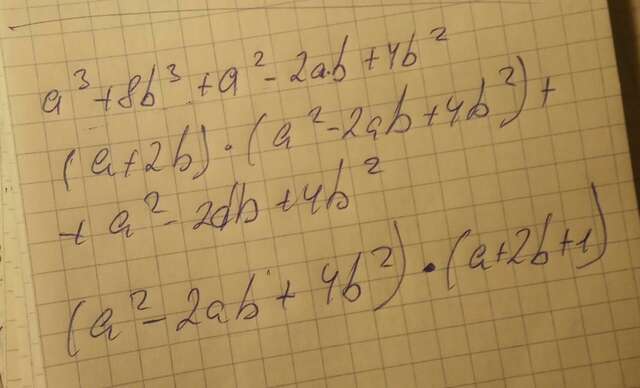 a³+8b³+a²-2ab+4b²
(a+2b)·(a²-2ab+4b²)+
+a²-2ab+4b²
(a²-2ab+4b²)·(a+2b+1)